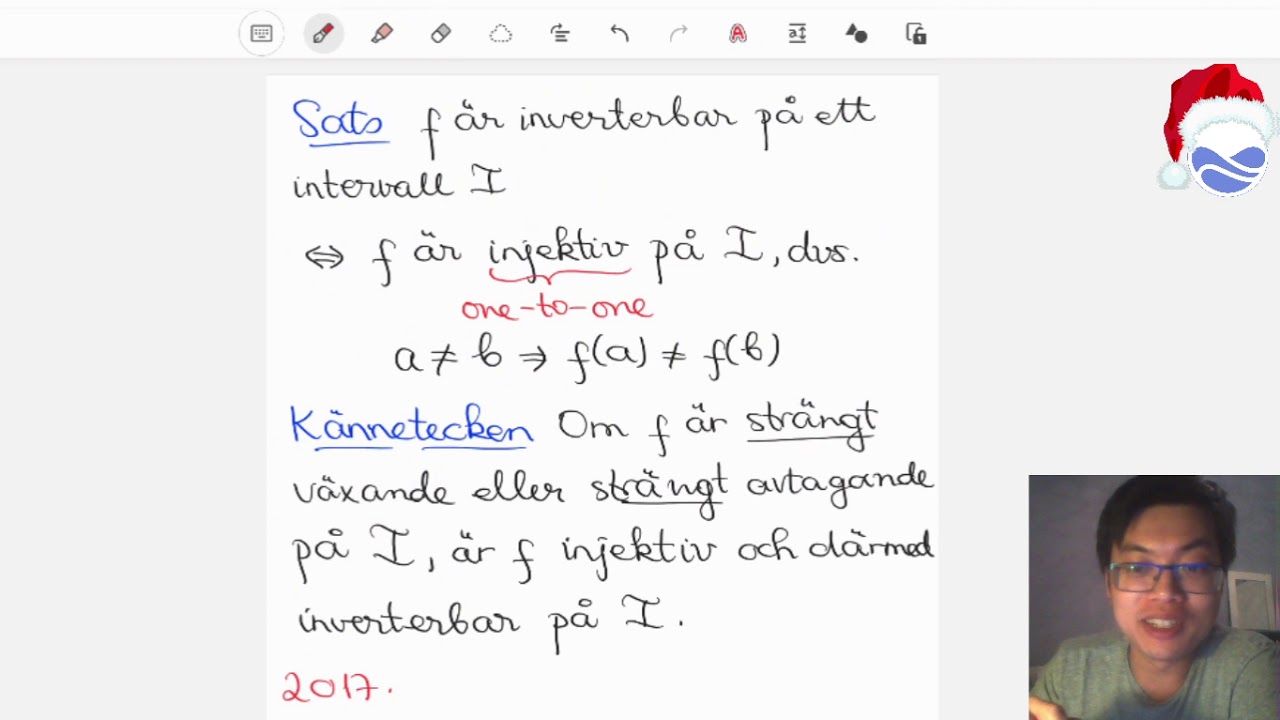 Sats f är inverterbar på ett
intervall I
⇔ f är injektiv på I, dvs.
one-to-one
a ≠ b ⇒ f(a) ≠ f(b)
Kännetecken Om f är strängt
växande eller strängt avtagande
på I, är f injektiv och därmed
inverterbar på I.
2017.